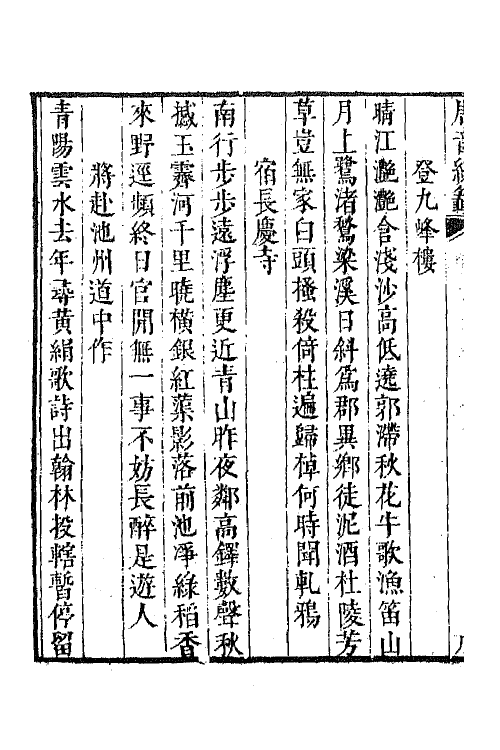 登九峰樓
晴江灔灔含淺沙高低遶郭滯秋花牛歌漁笛山
月上鷺渚鶖梁溪日斜爲郡異鄉徒泥酒杜陵芳
草豈無家白頭搔殺倚柱遍歸棹何時聞軋鴉
宿長慶寺
南行步步遠浮塵更近青山昨夜鄰高鐸數聲秋
撼玉霽河千里曉橫銀紅蕖影落前池淨綠稻香
來野逕頻終日官閒無一事不妨長醉是遊人
將赴池州道中作
青陽雲水去年尋黃絹歌詩出翰林投轄暫停留